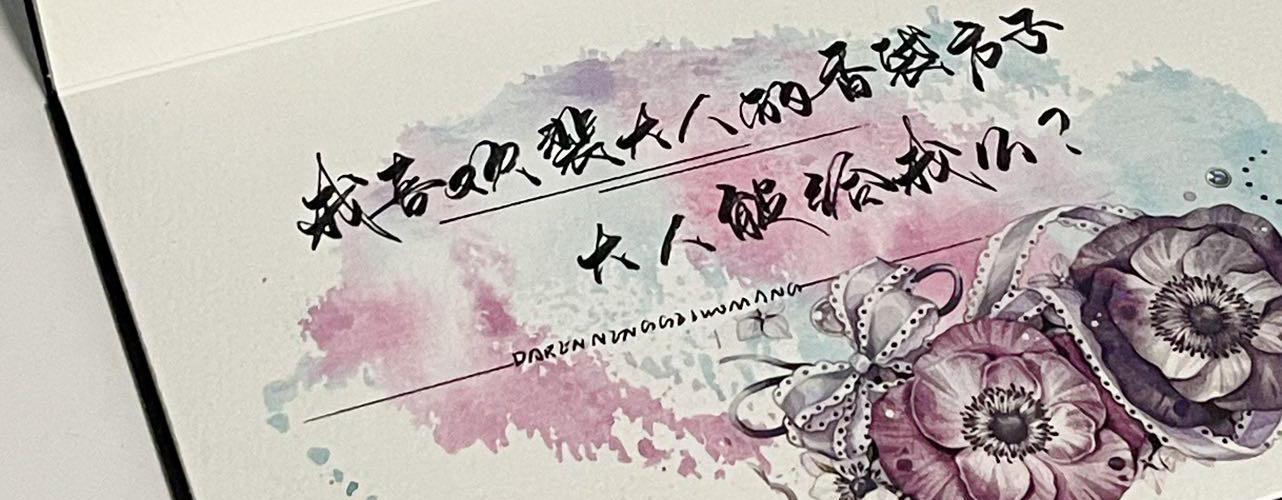 我喜欢裴大人的香袋方子
大人能给我吗?
DARENNENGGEIWOMANG